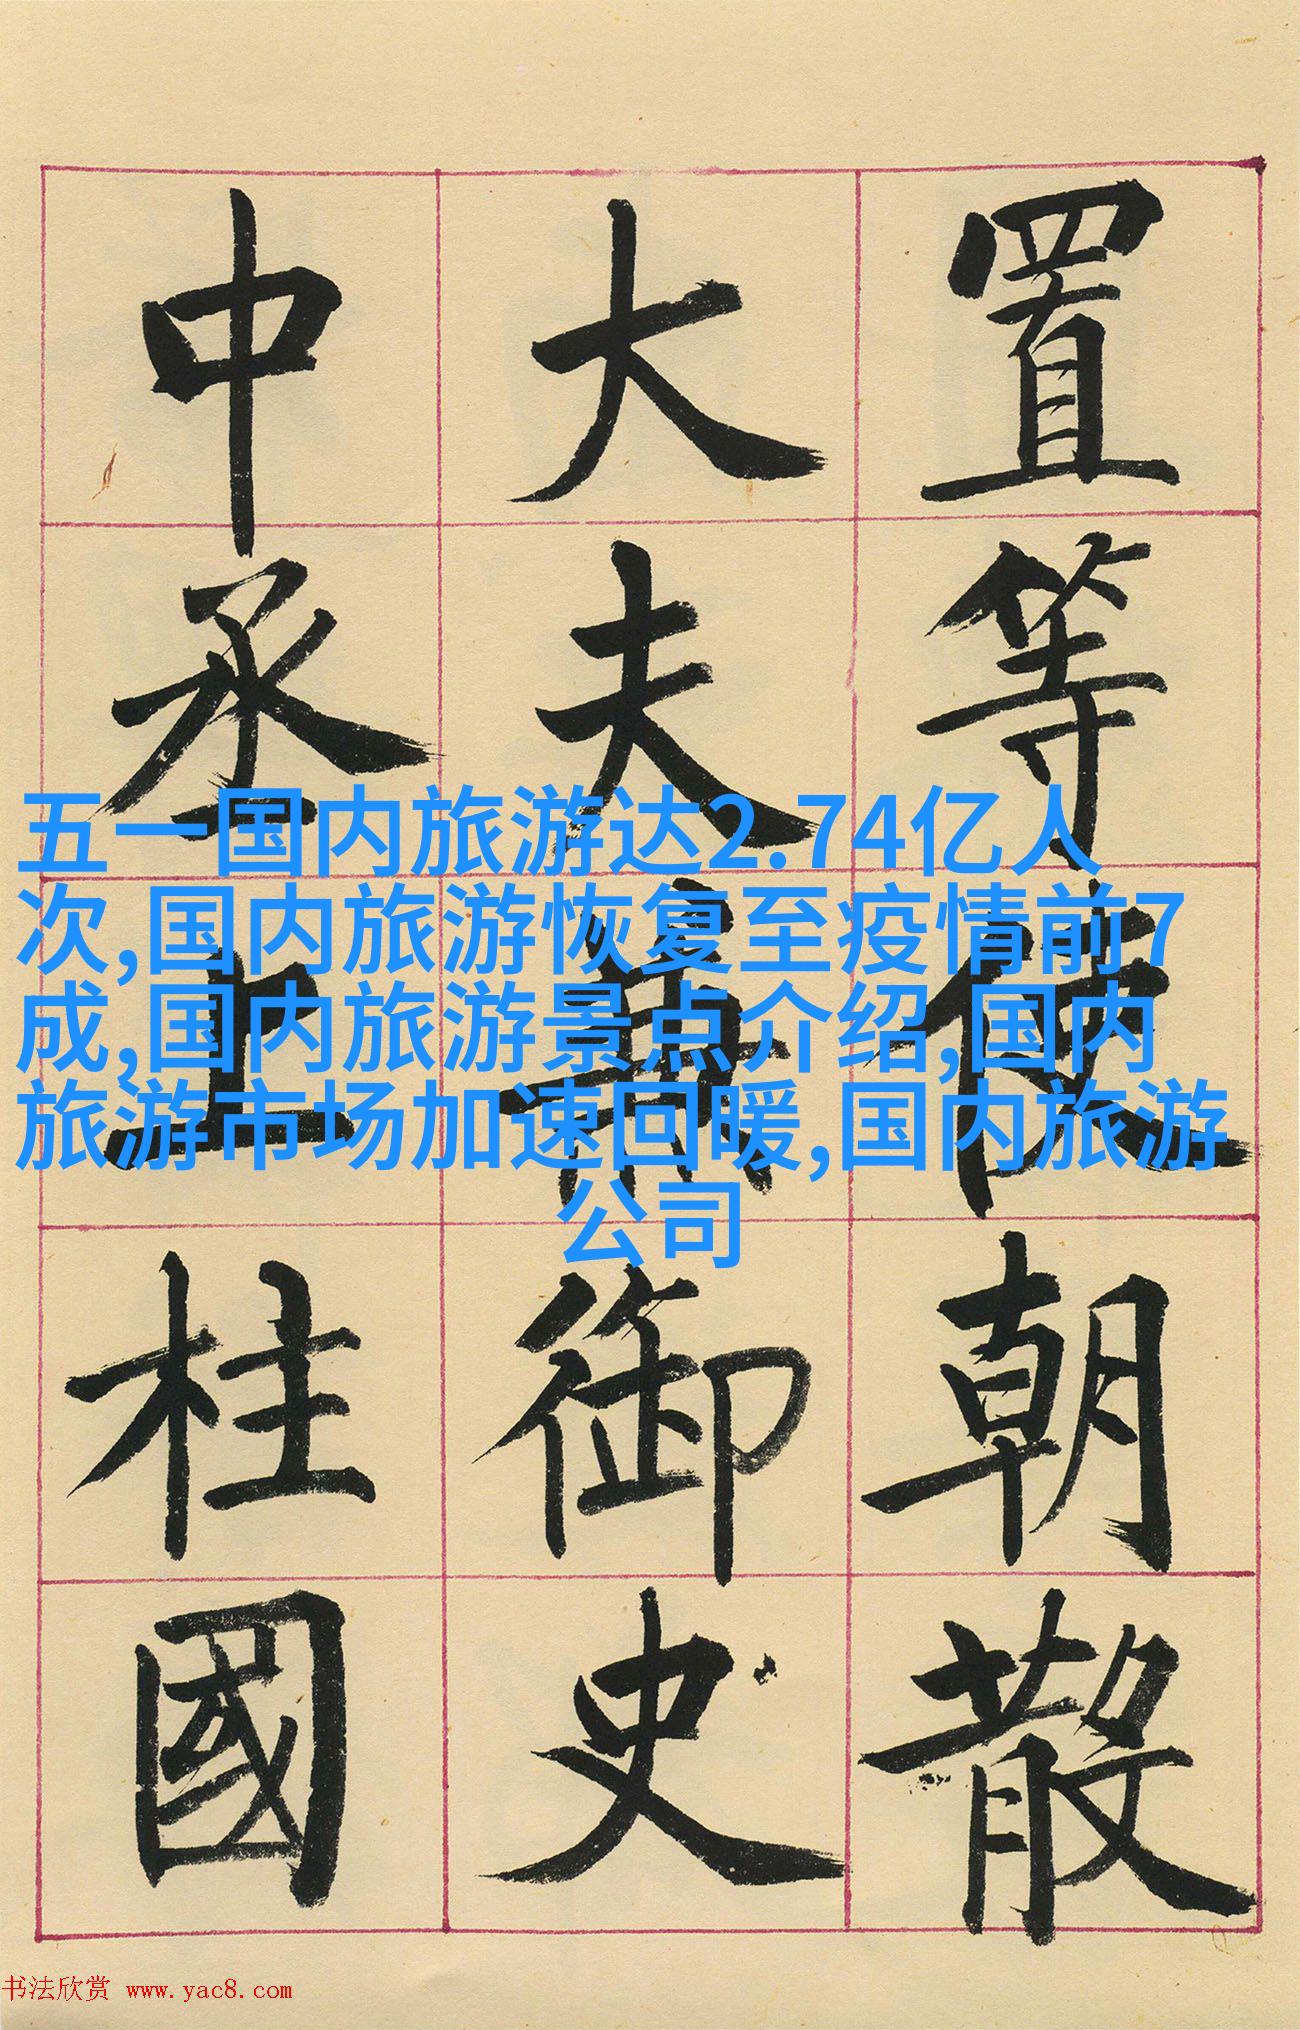 置等使朝散
大夫兼御史
中丞上柱國
五一国内旅游达2.74亿人
次,国内旅游恢复至疫情前7
成,国内旅游景点介绍,国内
旅游市场加速回暖,国内旅游
公司
书法欣赏 www.yac8.com